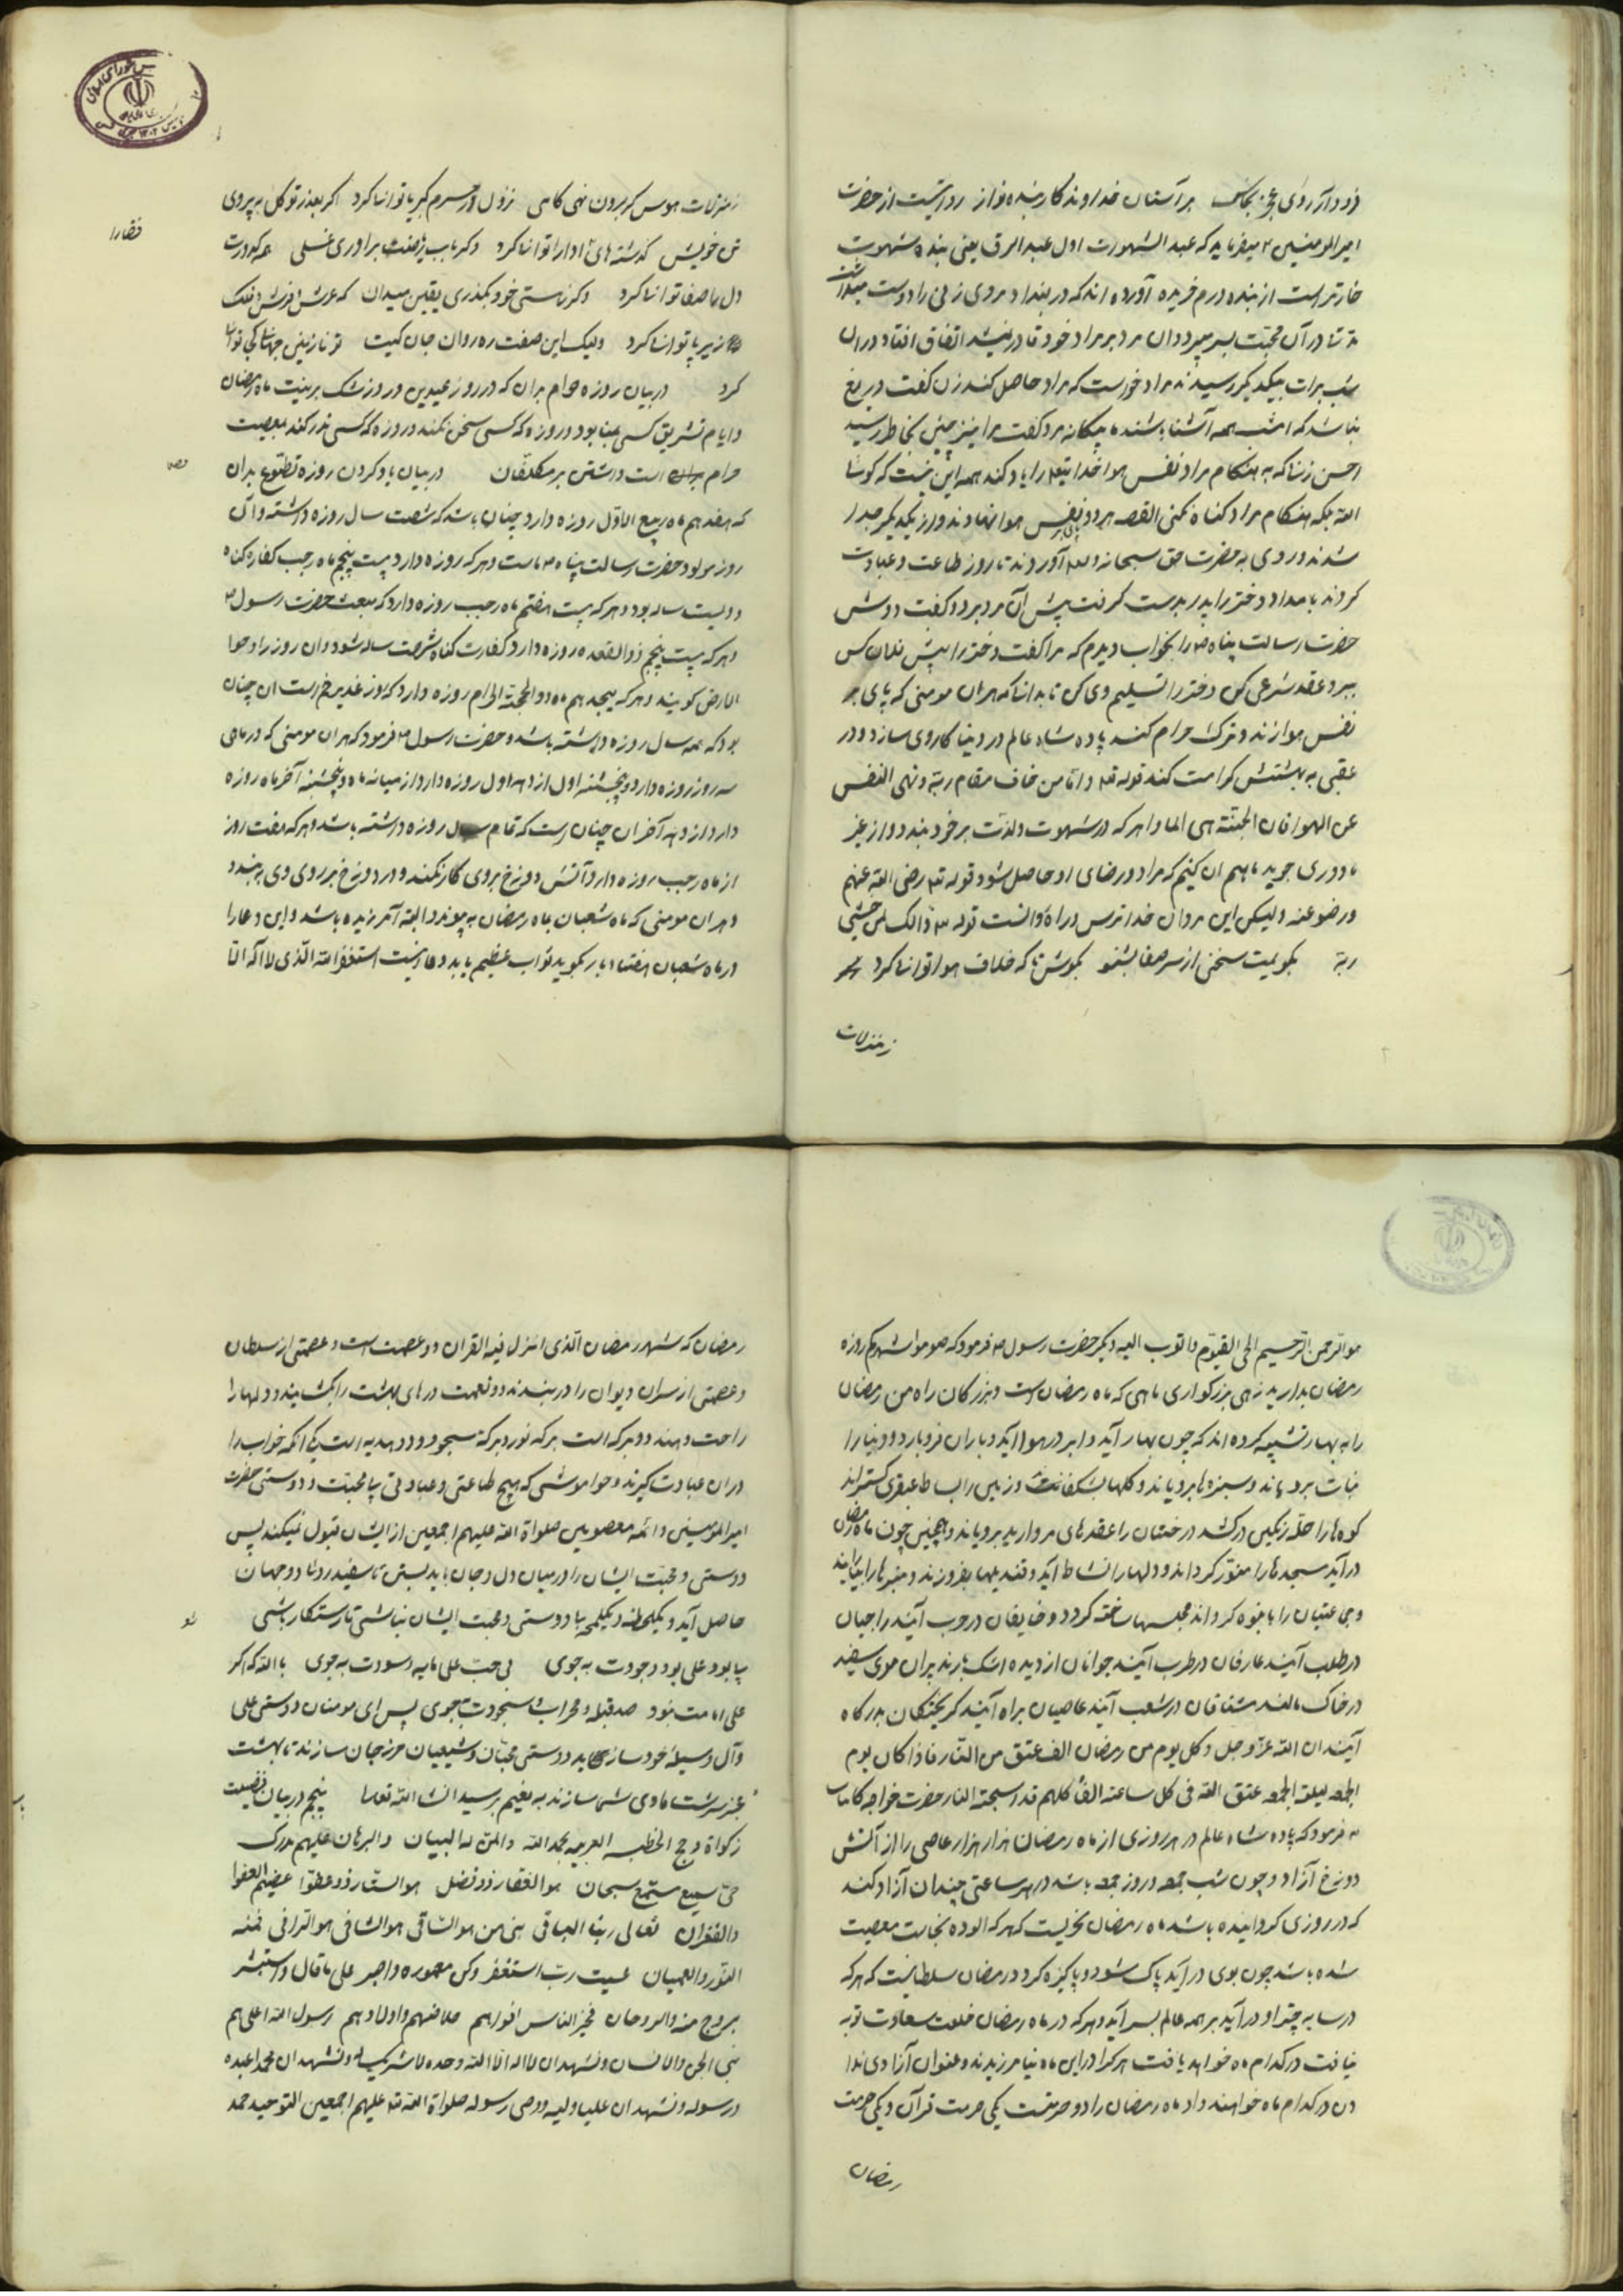 زود آر روی عجز بخاک بر آستان خداوندکار بنده‌نواز روایتست از حضرت
امیر المومنین ۴ میفرماید که عبد الشهوت اول عبد الرق یعنی بنده شهوت
خارتر است از بنده درم خریده آورده اند که در بغداد مردی زنی را دوست میداشت
مدتها در آن محبت بسر میبرد و آن مرد بر مراد خود قادر نمیشد اتفاق افتاد در آن
شب برات بیکدیگر رسیدند مرد خواست که مراد حاصل کند زن گفت دریغ
نباشد که امشب همه آشنا باشند ما بیگانه مرد گفت مرا نیز چنین بخاطر رسید
احسن زنی که به هنگام مراد نفس هوا خدا یتعه را یاد کند همه این نیست که کوشا
الله بلکه هنگام مراد گناه نکنی القصه هر دو نفس هوا نهادند و از یکدیگر جدا
شدند و روی به حضرت حق سبحانه و تعه آوردند تا روز طاعت و عبادت
کردند بامداد دختر را پدر بدست گرفت پیش آن مرد برد و گفت دوش
حضرت رسالت پناه ص را بخواب دیدم که مرا گفت دختر را پیش فلان کس
ببر و عقد شرعی کن دختر را تسلیم وی کن تا بداند که هر آن مومنی که پای بر
نفس هوا زند و ترک حرام کند پادشاه عالم در دنیا کار وی سازد و در
عقبی به بهشتش کرامت کند قوله تعه و اما من خاف مقام ربه و نهی النفس
عن الهوا فان الجنته هی الماوا هر که در شهوت و لذت بر خود بندد و از غیر
ما دوری جوید ما بهم آن کنیم که مراد و رضای او حاصل شود قوله تع رضی الله عنهم
و رضوعنه ولیکن این مردان خدا ترس در راه دانست قوله تع ذالک لمن خشی
ربه بگویمت سخنی از سر صفا بشنو بکوش تا که خلاف هوا توانی کرد
زمنزلات
زمنزلات هوس گر برون نهی گامی نزول در حرم کبریا توانی کرد اگر بعذر توکل به پیروی
تن خویش گذشته های ادا را توانی کرد وگر باب ریاضت براوری غسلی همه کدورت
دل را صفا توانی کرد وگر ز هستی خود بگذری یقین میدان که عرش و فرش و فلک
زیر پا توانی کرد ولیک این صفت ره روان جان کیست تو نازنین جهانی کجا توانی
کرد در بیان روزه حرام بدان که در روز عیدین و روز شک بر نیت ماه رمضان
و ایام تشریق کسی بمنا بود و روزه که کسی سخن نکند و روزه که کسی نذر کند بمعصیت
حرام است داشتن بر مکلفان در بیان یاد کردن روزه تطوع بدان
که هفدهم ماه ربیع الاول روزه دارد چنان باشد که شصت سال روزه داشته و آن
روز مولود حضرت رسالت پناه ص است و هر که روزه دارد بیست پنجم ماه رجب کفاره گناه
دویست ساله بود و هر که بیست هفتم ماه رجب روزه دارد که مبعث حضرت رسول ص
و هر که بیست پنجم ذوالقعده روزه دارد کفارت گناه شصت ساله شود و آن روز را دحوا
الارض گویند و هر که هیجدهم ماه ذو الحجته الحرام روزه دارد که روز غدیر خم است آن چنان
بود که همه سال روزه داشته باشد و حضرت رسول ص فرمود که هر آن مومنی که در ماهی
سه روز روزه دارد و پنجشنبه اول از دهه اول روزه دارد از میانه ماه و پنجشنبه آخر ماه روزه
دارد از دهه آخر آن چنان است که تمام سال روزه داشته باشد و هر که هفت روز
از ماه رجب روزه دارد آتش دوزخ بروی کار نکند و در دوزخ بر روی وی به بندد
و هر آن مومنی که ماه شعبان بماه رمضان به پیوندد البته آمرزیده باشد و این دعا را
در ماه شعبان هفتاد بار بگوید ثواب عظیم یابد دعا اینست استغفر الله الذی لا اله الا
قضا را
هو الرحمن الرحیم الحی القیوم و اتوب الیه دیگر حضرت رسول ص فرمود که صوموا شهرکم روزه
رمضان بدارید زهی بزرگواری ماهی که ماه رمضان است و بزرگان راه من رمضان
را به بهار تشبیه کرده اند که چون بهار آید و ابر در هوا آید و باران فرو بارد و دنیا را
نبات برویاند و سبزه ها برویاند و گلها بشکفاند و زمین را بساط عبقری گستراند
کوه ها را حله رنگین در کشد درختان را عقدهای مروارید برویاند و همچنین چون ماه رمضان
در آید مسجدها را منور گرداند و دلها را نشاط آید و قندیلها بفروزند و منبرها را بیارایند
و جماعتیان را بانبوه گرداند مجلسها ساخته گردد و خایفان در حرب آیند راجیان
در طلب آیند عارفان در طرب آیند جوانان از دیده اشک بارند پیران موی سفید
در خاک مالند مشتاقان در شعب آیند عاصیان براه آیند گریختگان بدرگاه
آیند ان الله عز و جل و کل یوم من رمضان الف عتق من النار فاذا کان یوم
الجمعه لیلة الجمعه عتق الله فی کل ساعته الف کلهم قد استوجبته النار حضرت خواجه کائنات
ص فرمود که پادشاه عالم در هر روزی از ماه رمضان هزار هزار عاصی را از آتش
دوزخ آزاد و چون شب جمعه و روز جمعه باشد در هر ساعتی چندان آزاد کند
که در روزی گردانیده باشد ماه رمضان بحریست که هر که آلوده نجاست معصیت
شده باشد چون بوی در آید پاک شود و پاکیزه گردد رمضان سلطانیست که هر که
در سایه چتر او در آید بر همه عالم بسر آید و هر که در ماه رمضان خلعت سعادت توبه
نیافت در کدام ماه خواهد یافت هر کرا در این ماه نیامرزیدند و عنوان آزادی ندا
دن در کدام ماه خواهند داد ماه رمضان را دو حرمتست یکی حرمت قرآن و یکی حرمت
رمضان
رمضان که شهر رمضان الذی انزل فیه القران دو عصمت است و عصمتی از سلطان
و عصمتی از سران دیوان را در بندند دو نعمت درهای بهشت را بگشایند و دلها را
راحت دهند دو برکه است برکه نور و برکه سحور و دو هدیه است یکی آنکه خواب را
در آن عبادت گیرند و خواموشی که هیچ طاعتی و عبادتی بی محبت و دوستی حضرت
امیر المؤمنین و ائمه معصومین صلواة الله علیهم اجمعین از ایشان قبول نمیکند پس
دوستی و محبت ایشان را در میان دل و جان باید بستن تا سفید روئی دو جهان
حاصل آید و یک لحظه و یک لمحه بی دوستی و محبت ایشان نباشی تا رستگار باشی
بی بود علی بود وجودت به جوی بی حب علی مایه و سودت به جوی بالله که اگر
علی امامت نبود صد قبله و محراب سجودت به جوی پس ای مومنان دوستی علی
و آل وسیله خود سازید و دوستی محبان و شیعیان حرز جان سازند تا بهشت
عنبر سرشت ماوی شما سازند به نعیم برسید انشا الله تعالی پنجم در بیان فضیلت
زکواة و حج الخطبه العربیه بحمد الله و المن له البیان و البرهان علیهم مدرک
حی سمیع مستمع سبحان هو الغفار ذو فضل هو الستار ذو عطوا عیضهم العفوا
و الغفران تعالی ربنا الباقی بنی من هو الساقی هو الشافی هو الراقی فمنه
النور و العمیان عسیت رب استغفر وکن معموره و اصبر علی ما قال و استبشر
بروح منه و الروحان فخیر الناس اقواهم خلایفهم و اولادهم رسول الله اعلی هم
نبی الجن و الانسان و نشهد ان لا اله الا الله وحده لا شریک له و نشهد ان محمدا عبده
و رسوله و نشهد ان علیا ولیه و وصی رسوله صلواة الله تعه علیهم اجمعین التوحید حمد